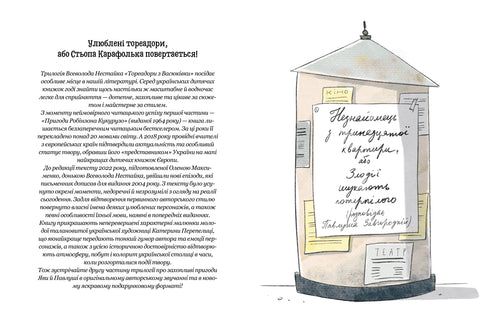 Улюблені тореадори,
або Стьопа Карафолька повертається!
Трилогія Всеволода Нестайка «Тореадори з Васюківки» посідає
особливе місце в нашій літературі. Серед українських дитячих
книжок годі знайти щось настільки ж масштабне й водночас
легке для сприйняття — дотепне, захопливе та цікаве за сюже-
том і майстерне за стилем.
З моменту неймовірного читацького успіху першої частини —
«Пригоди Робінзона Кукурузо» (виданої 1964 року) — книга ли-
шається беззаперечним читацьким бестселером. За ці роки її
перекладено понад 20 мовами світу. А 2018 року провідні вчителі
з європейських країн підтвердили актуальність та особливий
статус твору, обравши його «представником» України на мапі
найкращих дитячих книжок Європи.
До редакції тексту 2022 року, підготовленої Оленою Макси-
менко, донькою Всеволода Нестайка, увійшли нові епізоди, які
письменник дописав для видання 2004 року. З тексту було усу-
нуто окремі моменти, недоречні й незрозумілі з огляду на реалії
сьогодення. Задля відтворення первинного авторського стилю
повернуто власні імена окремих улюблених персонажів, а також
певні особливості їхньої мови, наявні в попередніх виданнях.
Книгу прикрашають неперевершені характерні малюнки моло-
дої талановитої української художниці Катерини Перепелиці,
що якнайкраще передають тонкий гумор автора та емоції пер-
сонажів, а також з усією історичною достовірністю відтворю-
ють атмосферу, побут і колорит української столиці в часи,
коли розгортались події твору.
Тож зустрічайте другу частину трилогії про захопливі пригоди
Яви й Павлуші в оригінальному авторському звучанні та в ново-
му яскравому подарунковому форматі!
КІНО
Незнайомець
з тринадцятої
квартири,
або
Злодії
шукають
потерпілого
(розповідає
Павлуша Завгородній)
ТЕАТР